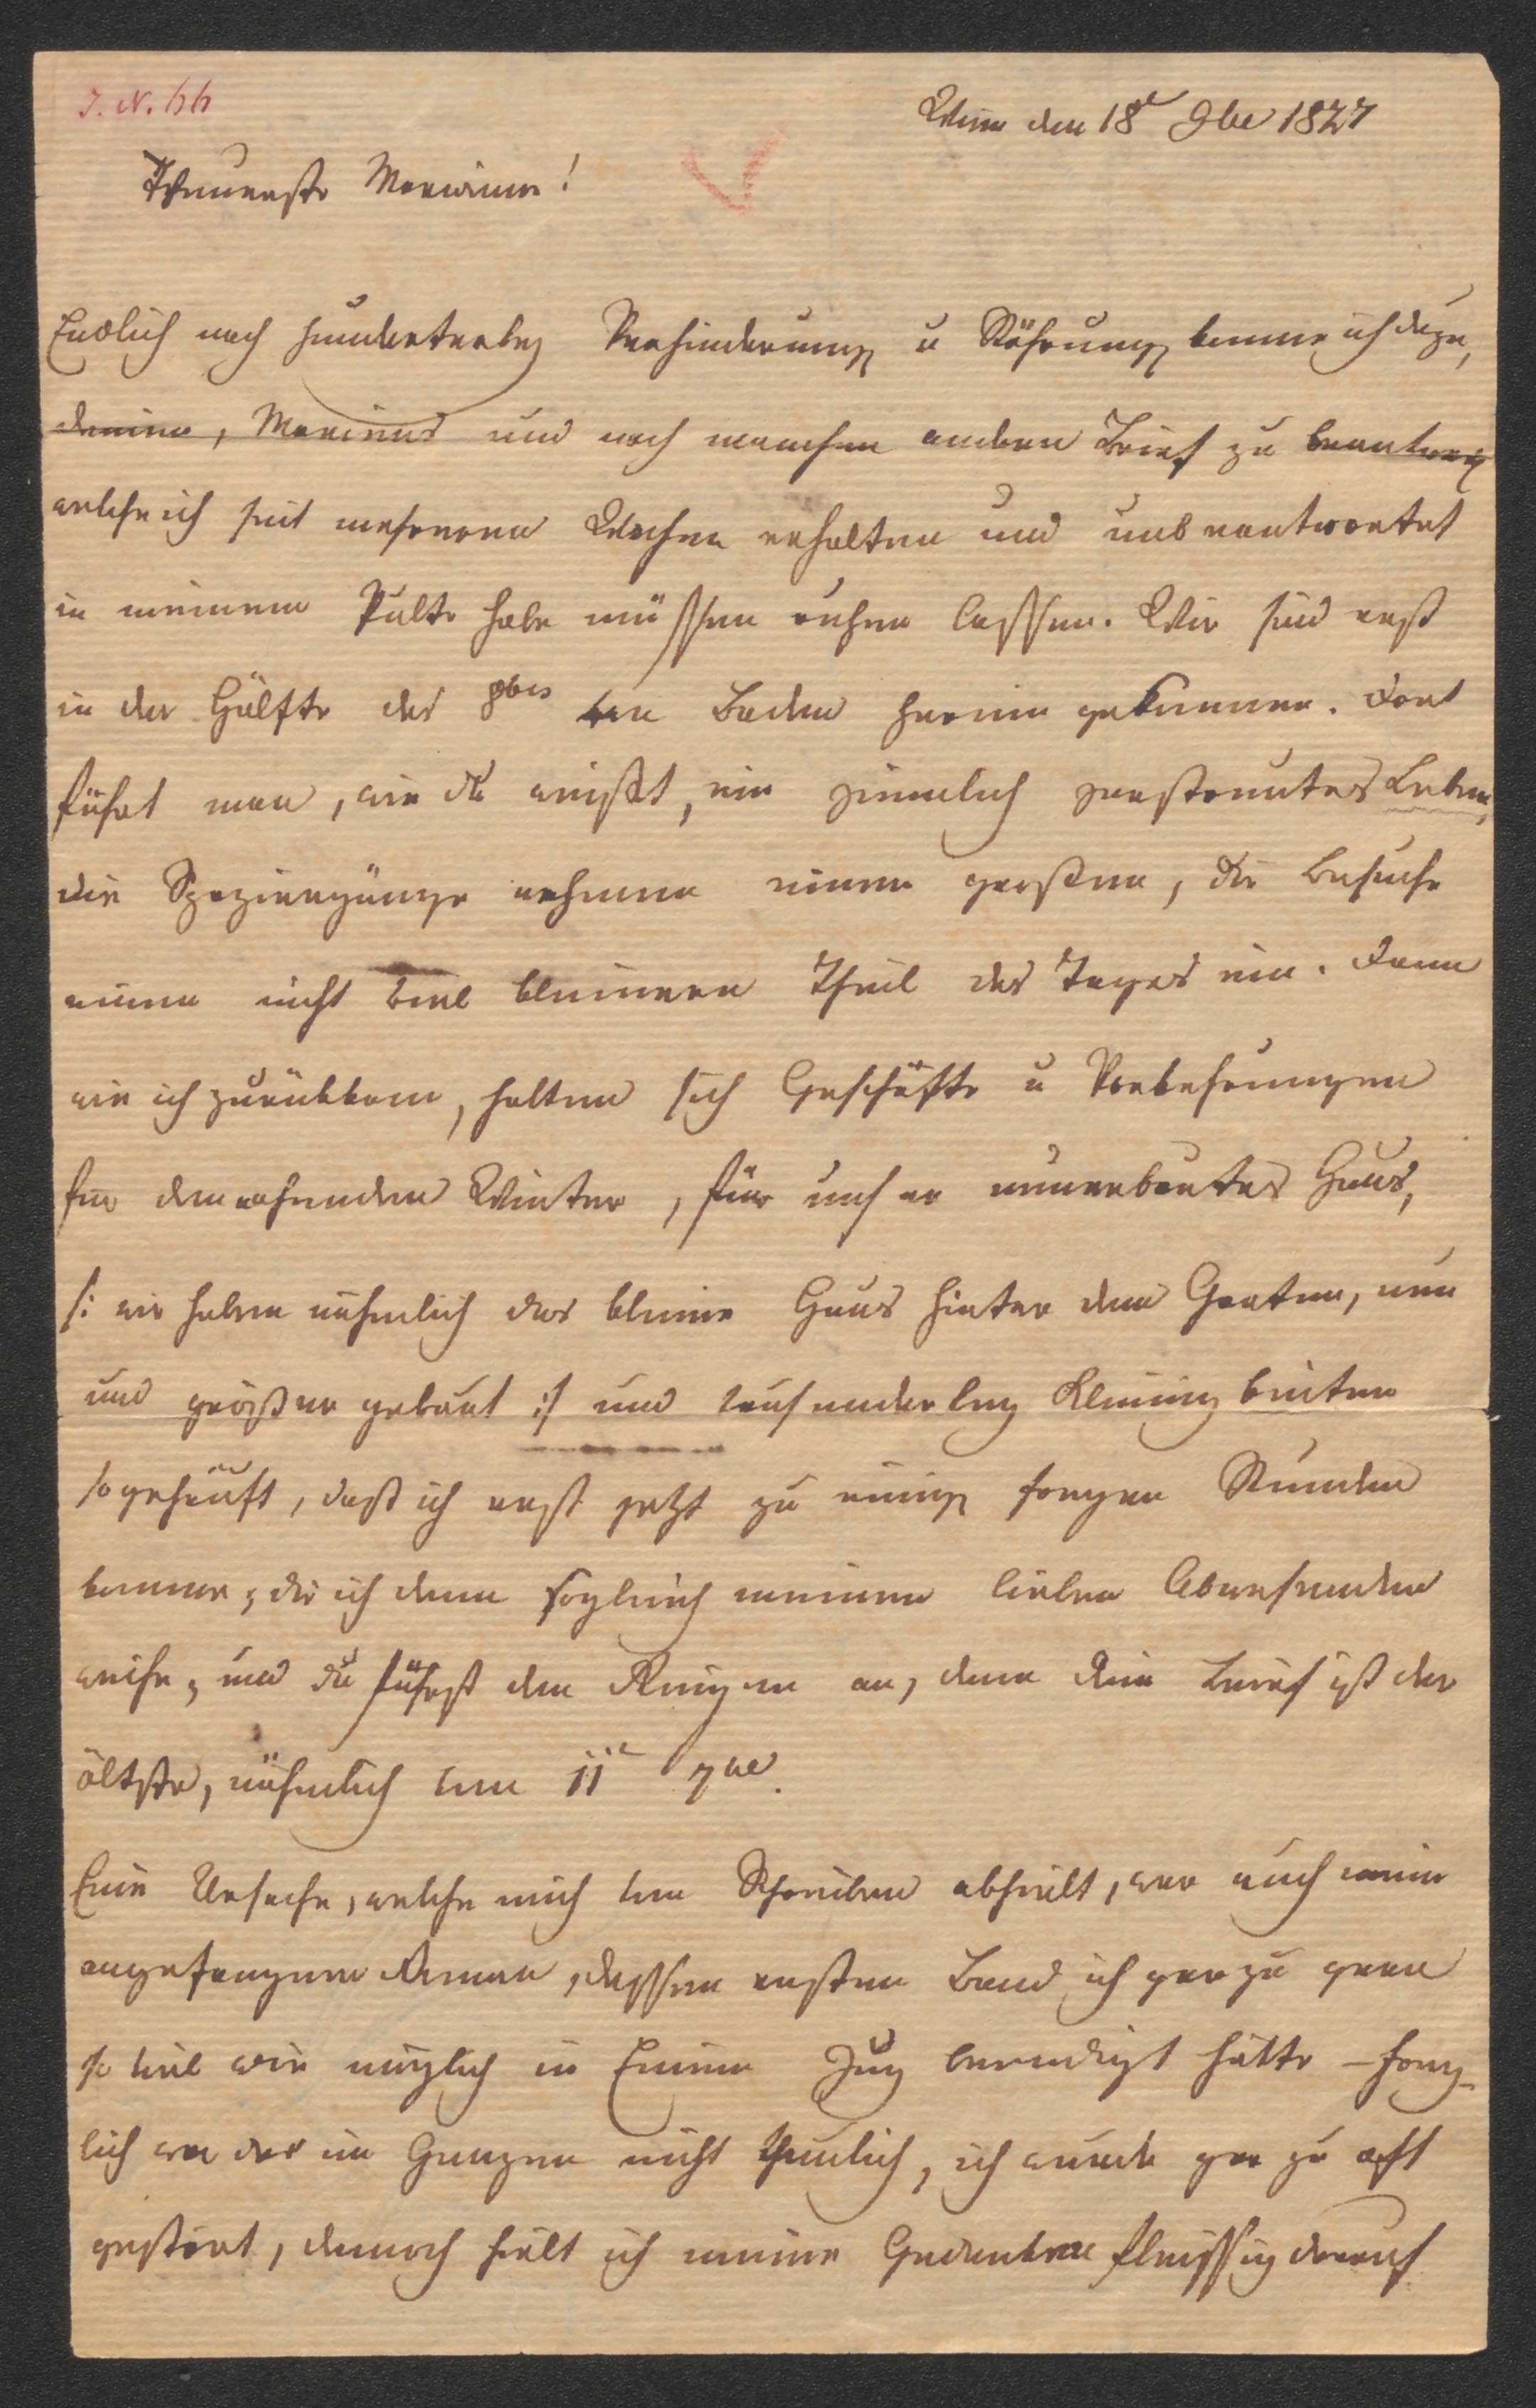 I. N. 66
Wien den 18t 9be 1827
Theuerste Marianne!
Endlich nach hunderterley Verhinderung u Störung komme ich dazu,
deinen, Marinens und noch manchen andern Brief zu beantw
welche ich seit mehreren Wochen erhalten und unbeantwortet
in meinem Pulte habe müssen ruhen lassen. Wir sind erst
in der Hälfte des 8bers von Baden herein gekommen. Dort
führt man, wie du weißt, ein ziemlich zerstreutes Leben,
die Spaziergänge nehmen einen großen, die Besuche
einen nicht viel kleineren Theil des Tages ein. Dann
wie ich zurückkam, hatten sich Geschäfte u Vorkehrungen
für den nahenden Winter, für unser neuerbautes Haus,
/: wir haben nähmlich das kleine Haus hinter dem Garten, neu
und größer gebaut :/ und tausenderley Kleinigkeiten
so gehäuft, daß ich erst jetzt zu einig freyen Stunden
komme, die ich denn sogleich meinen lieben Abwesenden
weihe, und du führst den Reigen an, denn dein Brief ist der
ältste, nähmlich vom 11t 7be.
Eine Ursache, welche mich vom Schreiben abhielt, war auch mein
angefangener Roman, dessen ersten Band ich gar zu gern
so viel wie möglich in Einem Zug beendigt hätte – frey-
lich war das im Ganzen nicht thunlich, ich wurde gar zu oft
gestört, dennoch hielt ich meine Gedanken fleissig darauf